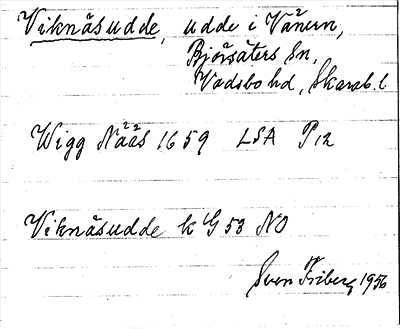 Viknäsudde, udde i Vänern,
Björsäters sn,
Vadsbo hd, Skarab. l
Wigg Nääs 1659 LSA P12
Viknäsudde k G 53 NO
Sven Friberg 1956